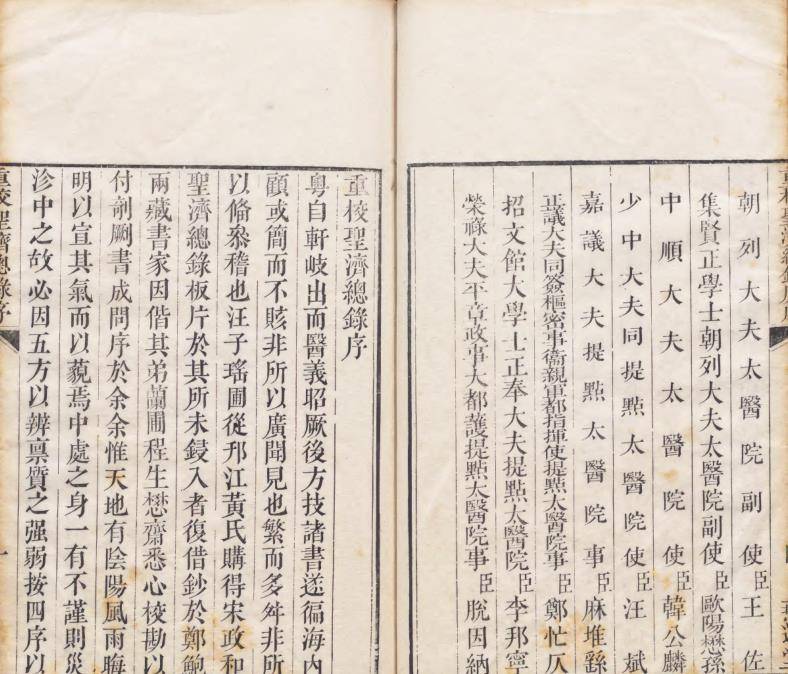 朝列大夫太醫院副使臣王佐
集賢正學士朝列大夫太醫院副使臣歐陽懋孫
中順大夫太醫院使臣韓公麟
少中大夫同提㸃太醫院使臣汪斌
嘉議大夫提㸃太醫院事臣麻堆綵
正議大夫同簽樞密事衞親軍都指揮使提㸃太醫院事臣鄭忙仄
招文館大學士正奉大夫提㸃太醫院臣李邦寧
榮祿大夫平章政事大都護提㸃太醫院事臣脫因納
重校聖濟總錄序
粵自軒岐出而醫義昭厥後方技諸書遂徧海内
顧或簡而不賅非所以廣聞見也繁而多舛非所
以偹叅稽也汪子瑤圃從邗江黃氏購得宋政和
聖濟總錄板片於其所未鋟入者復借鈔於鄭鮑
兩藏書家因偕其弟蘭圃程生懋齋悉心校勘以
付剞劂書成問序於余余惟天地有陰陽風雨晦
明以宣其氣而以藐焉中處之身一有不謹則災
沴中之故必因五方以辨禀質之强弱按四序以
重校聖濟總錄序
一